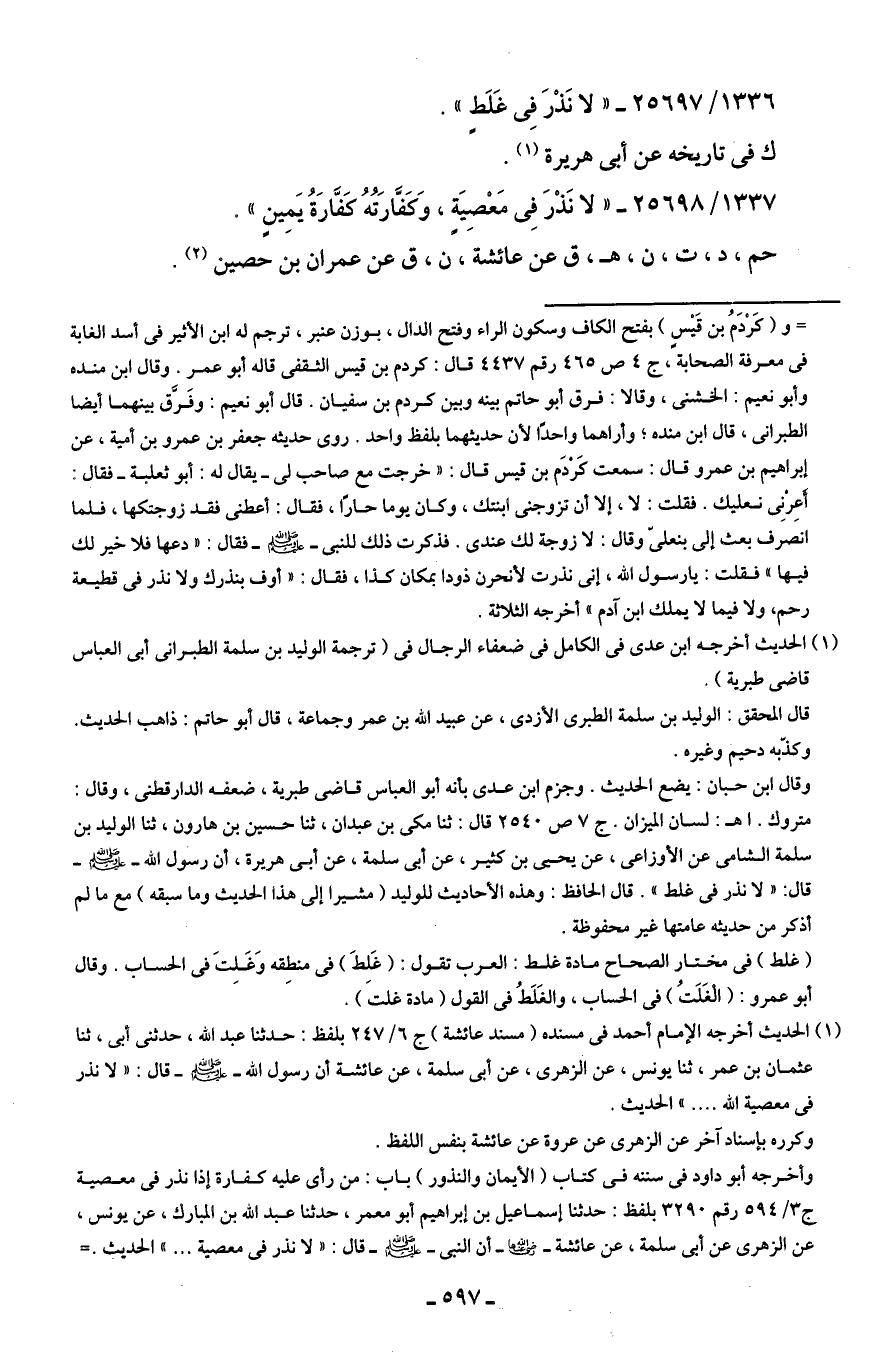 ١٣٣٦/ ٢٥٦٩٧ ـ « لا نَذْرَ فِى غَلَطٍ » .
ك فى تاريخه عن أبى هريرة (١) .
١٣٣٧/ ٢٥٦٩٨ ـ « لا نَذْرَ فِى مَعْصِيَةٍ ، وَكَفَّارَتُهُ كَفَّارَةُ يَمِينٍ » .
حم ، د ، ت ، ن ، هـ ، ق عن عائشة ، ن ، ق عن عمران بن حصين (٢) .
= و ( كَرْدَمُ بن قَيْسٍ ) بفتح الكاف وسكون الراء وفتح الدال ، بـوزن عنبر ، ترجم له ابن الأثير فى أسد الغابة
فى معرفة الصحابة ، ج ٤ ص ٤٦٥ رقم ٤٤٣٧ قـال : كردم بن قيس الثقفى قاله أبو عمـر . وقال ابن منـده
وأبو نعيم : الخشنى ، وقالا : فـرق أبو حاتم بينه وبين كـردم بن سفيان . قال أبو نعيم : وفَـرَّق بينهمـا أيضا
الطبرانى ، قال ابن منده ؛ وأراهما واحدًا لأن حديثهما بلفظ واحد . روى حديثه جعفر بن عمرو بن أمية ، عن
إبراهيم بن عمرو قـال : سمعت كَرْدَم بن قيس قـال : « خرجت مع صاحب لى ـ يقال له : أبو ثعلبة ـ فقال :
أَعِرْنِى نـعليك . فقلت : لا ، إلا أن تزوجنى ابنتك ، وكـان يوما حـارًا ، فقـال : أعطنى فقـد زوجتكها ، فـلما
انصرف بعث إلى بنعلىّ وقال : لا زوجة لك عندى . فذكرت ذلك للنبى ـ ﷺ ـ فقال : « دعها فلا خير لك
فيـها » فـقلت : يارسـول الله ، إنى نذرت لأنحرن ذودا بمكان كـذا ، فقـال : « أوف بنذرك ولا نذر فى قطيعة
رحم، ولا فيما لا يملك ابن آدم » أخرجه الثلاثة .
(١) الحديث أخرجـه ابن عدى فى الكامل فى ضعفاء الرجـال فى ( ترجمة الوليد بن سلمة الطبـرانى أبى العباس
قاضى طبرية ) .
قال المحقق : الوليد بن سلمة الطبرى الأزدى ، عن عبيد الله بن عمر وجماعة ، قال أبو حاتم : ذاهب الحديث.
وكذّبه دحيم وغيره .
وقال ابن حبـان : يضع الحديث . وجزم ابن عـدى بأنه أبو العباس قـاضى طبرية ، ضعفـه الدارقطنى ، وقال :
متروك . ا هـ : لسان الميزان . ج ٧ ص ٢٥٤٠ قال : ثنا مكى بن عبدان ، ثنا حسين بن هارون ، ثنا الوليد بن
سلمة الـشامى عن الأوزاعى ، عن يحيـى بن كثيـر ، عن أبى سلمة ، عن أبـى هريرة ، أن رسول الله ـ ﷺ ـ
قال: « لا نذر فى غلط » . قال الحافظ : وهذه الأحاديث للوليد ( مشـيرا إلى هذا الحديث وما سبقه ) مع ما لم
أذكر من حديثه عامتها غير محفوظة .
( غلط ) فى مختـار الصحـاح مـادة غلـط : العـرب تقـول : ( غَلِطَ ) فى منطِقه وَغَـلِتَ فى الحساب . وقال
أبو عمرو : ( الْغَلَتُ ) فى الحساب ، والغَلَطُ فى القول ( مادة غلت ) .
(١) الحديث أخرجه الإمـام أحمد فى مسنده ( مسند عائشة ) ج ٦/ ٢٤٧ بلفظ : حـدثنا عبد الله ، حدثنى أبى ، ثنا
عثمـان بن عمر ، ثنا يونس ، عن الزهرى ، عن أبى سلمة ، عن عائشـة أن رسول الله ـ ﷺ ـ قال : « لا نذر
فى معصية الله .... » الحديث .
وكرره بإسناد آخر عن الزهرى عن عروة عن عائشة بنفس اللفظ .
وأخـرجه أبو داود فى سننه فـى كتاب ( الأيمان والنذور ) بـاب : من رأى عليه كـفـارة إذا نذر فى معـصيـة
ج٣/ ٥٩٤ رقم ٣٢٩٠ بلفظ : حدثنا إسمـاعيل بن إبراهيم أبو معمر ، حدثنا عبـد الله بن المبارك ، عن يونس ،
عن الزهرى عن أبى سلمة ، عن عائشة ـ رضي الله عنها ـ أن النبى ـ ﷺ ـ قال : « لا نذر فى معصية ... » الحديث .=
ـ ٥٩٧ ـ